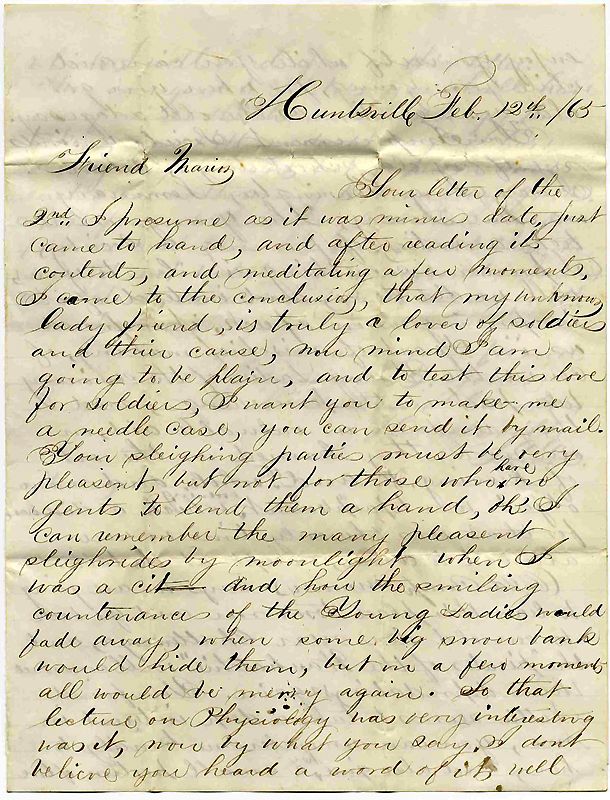 Huntsville Feb. 12th /65
Friend Marion,
Your letter of the
2nd. I presume as it was minus date, just
came to hand, and after reading its
contents, and meditating a few moments,
I came to the conclusion, that my unknown
lady friend, is truly a lover of soldiers
and thier cause, now mind I am
going to be plain, and to test this love
for soldiers, I want you to make me
a needle case, you can send it by mail.
Your sleighing parties must be very
pleasent, but not for those who have no
gents to lend them a hand, Oh. I
can remember the many pleasent
sleighrides by moonlight when I
was a cit— and how the smiling
countenances of the Young Ladies would
fade away, when some big snow bank
would hide them, but in a few moments
all would be merry again. So that
lecture on Physiology was very interesting
was it, now by what you say, I dont
believe you heard a word of it, well